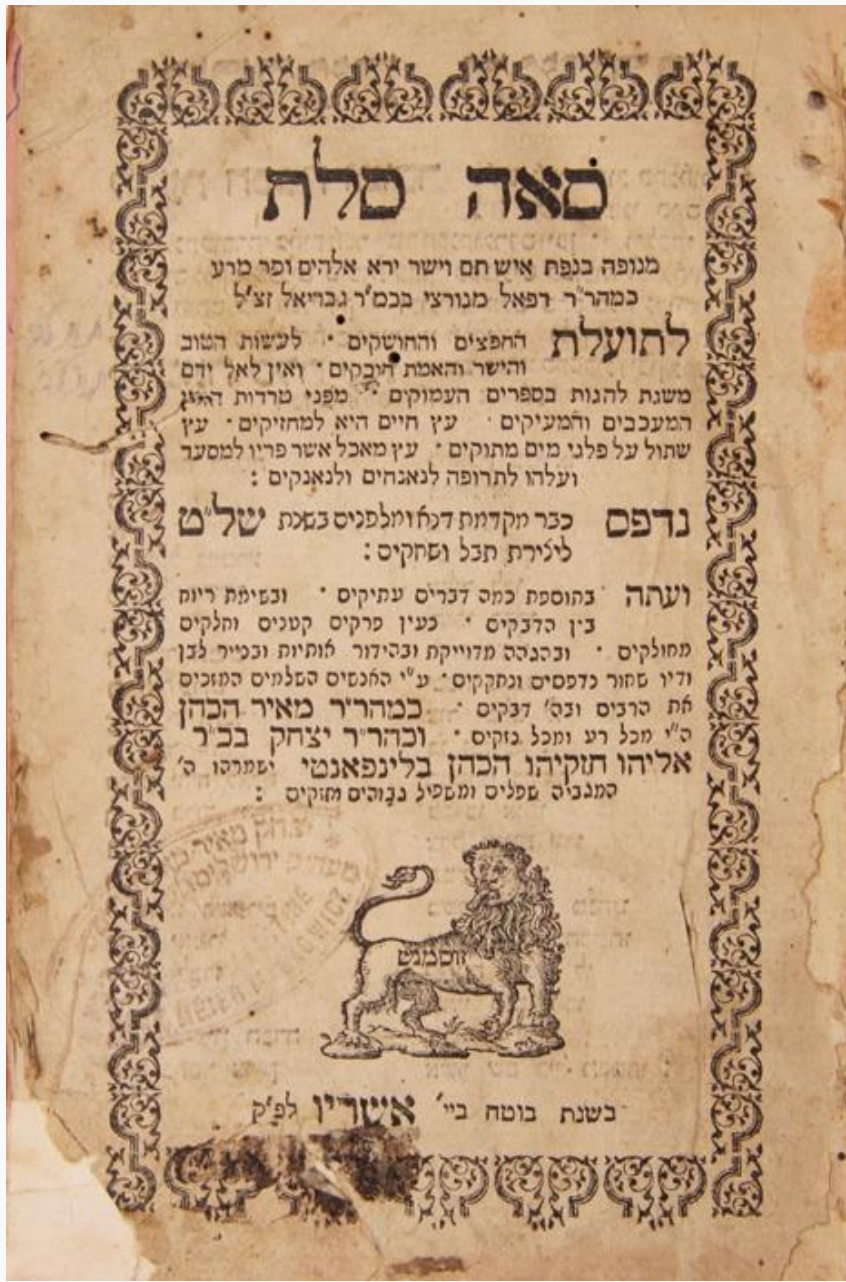 סאה סלת
מנופה בנפת איש תם וישר ירא אלהים וסר מרע
כמהר"ר רפאל מנורצי בכמ'ר גבריאל זצ'ל
לתועלת החפצים והחושקים · לעשות הטוב
והישר והאמת חובקים · ואין לאל ידם
משגת להגות בספרים העמוקים · מפני טרדות הזמן
המעכבים והמעיקים · עץ חיים היא למחזיקים · עץ
שתול על פלגי מים מתוקים · עץ מאכל אשר פריו למסעד
ועלהו לתרופה לנאנחים ולנאנקים :
נדפס כבר מקדמת דנא ומלפנים בשנת של"ט
ליצירת תבל ושחקים :
ועתה בתוספת כמה דברים עתיקים · ובשימת ריוח
בין הדבקים · כעין פרקים קטנים וחלקים
מחולקים · ובהגהה מדוייקת ובהידור אותיות ובנייר לבן
ודיו שחור נדפסים ונחקקים · ע"י האנשים השלמים המזכים
את הרבים ובה' דבקים · כמהר"ר מאיר הכהן
ה"י מכל רע ומכל נזקים · וכהר"ר יצחק בכ"ר
אליהו חזקיהו הכהן בלינפאנטי ישמרהו ה'
המגביה שפלים ומשפיל גבוהים וחזקים :
בשנת בוטח ביי' אשריו לפ"ק